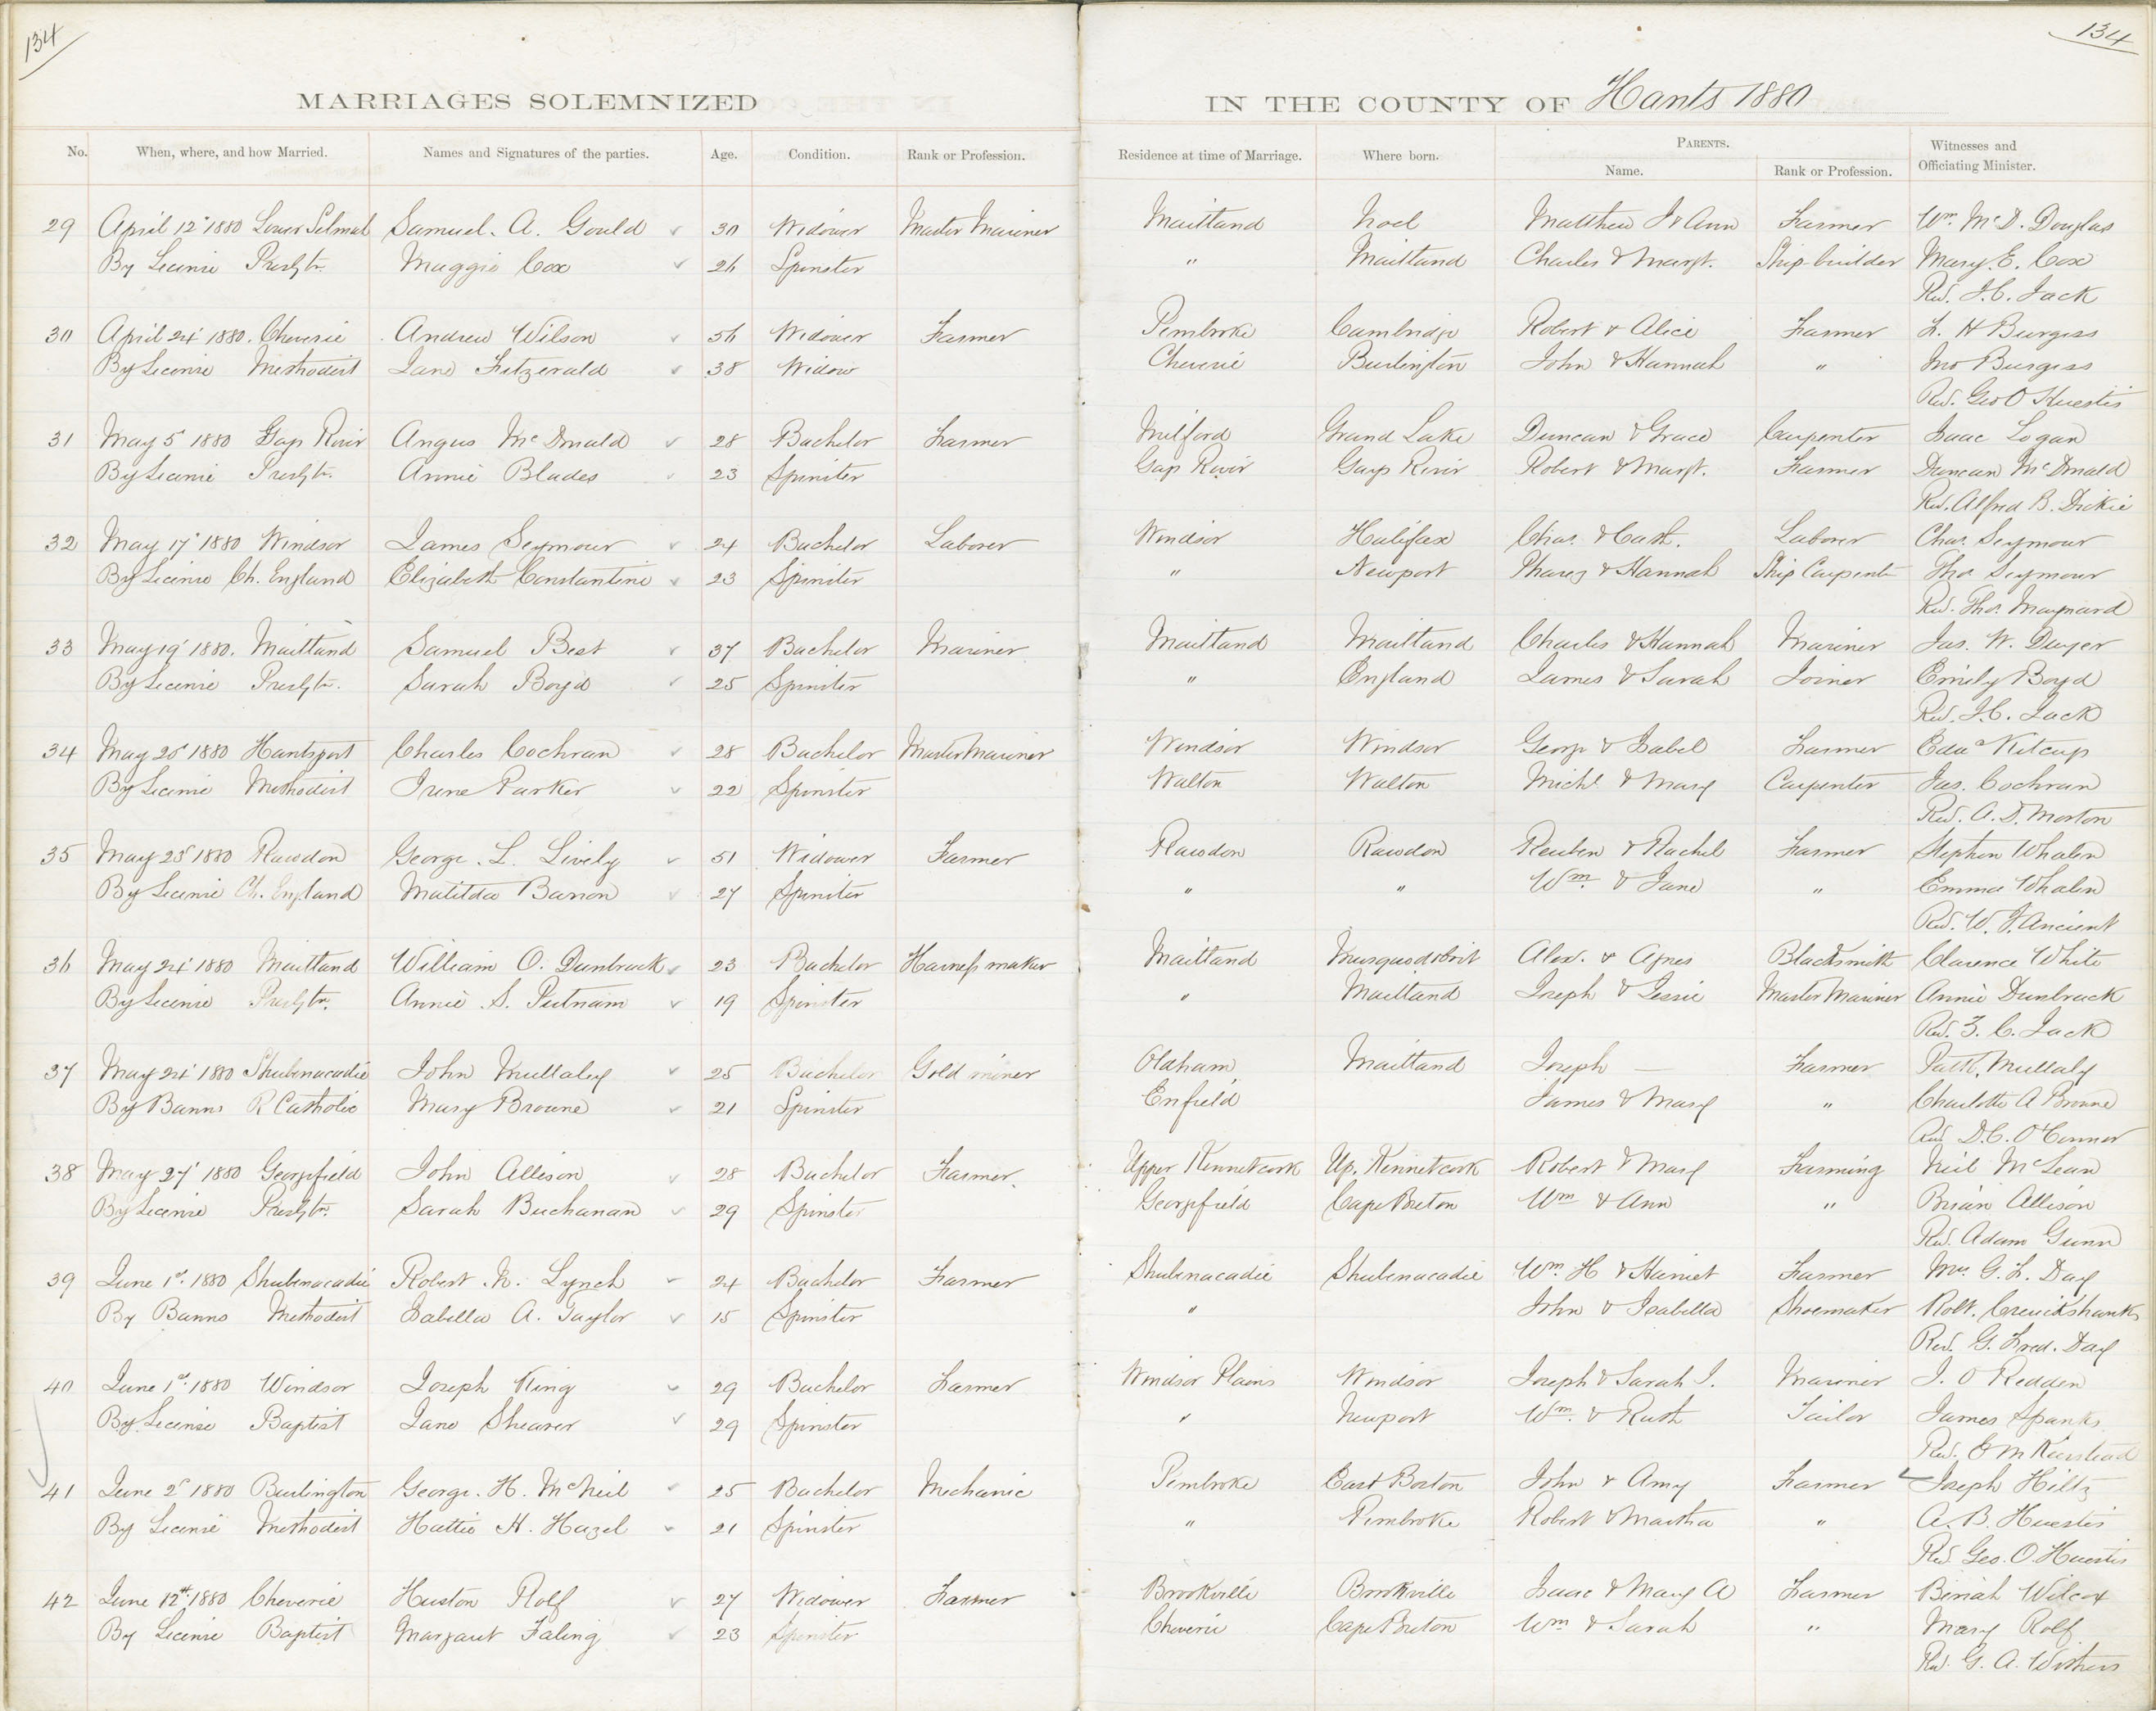 134
134
MARRIAGES SOLEMNIZED IN THE COUNTY OF Hants 1880
No. When, where, and how Married. Names and Signatures of the parties. Age. Condition. Rank or Profession. Residence at time of Marriage. Where born. PARENTS. Name. Rank or Profession. Witnesses and Officiating Minister.
29 April 12" 1880 Lower Selmah Samuel. A. Gould 30 Widower Master Mariner Maitland Noel Matthew & Ann Farmer Wm. McD. Douglas
By License Presbtn. Maggie Cox 26 Spinster " Maitland Charles & Margt. Ship-builder Mary. E. Cox
Rev. J. C. Jack
30 April 24" 1880. Cheverie Andrew Wilson 56 Widower Farmer Pembroke Cambridge Robert & Alice Farmer L. H Burgess
By License Methodist Jane Fitzerald 38 Widow Cheverie Burlington John & Hannah " Jno Burgess
Rev. Geo O Huestis
31 May 5" 1880 Gays River Angus McDonald 28 Bachelor Farmer Milford Grand Lake Duncan & Grace Carpenter Isaac Logan
By License Presbtn. Annie Blades 23 Spinster Gays River Gays River Robert & Margt. Farmer Duncan McDonald
Rev. Alfred B. Dickie
32 May 17" 1880 Windsor James Seymour 24 Bachelor Laborer Windsor Halifax Chas. & Cath. Laborer Chas. Seymour
By License Ch. England Elizabeth Constantine 23 Spinster " Newport Pharez & Hannah Ship Carpenter Thos Seymour
Rev. Thos. Maynard
33 May 19" 1880. Maitland Samuel Best 37 Bachelor Mariner Maitland Maitland Charles & Hannah Mariner Jas. W. Dwyer
By License Presbtn. Sarah Boyd 25 Spinster " England James & Sarah Joiner Emily Boyd
Rev. J. C. Jack
34 May 20" 1880 Hantsport Charles Cochran 28 Bachelor Master Mariner Windsor Windsor George & Isabel Farmer Edwd Kilcup
By License Methodist Irene Parker 22 Spinster Walton Walton Michl & Mary Carpenter Jas. Cochran
Rev. A. D. Morton
35 May 25" 1880 Rawdon George. L. Lively 51 Widower Farmer Rawdon Rawdon Reuben & Rachel Farmer Stephen Whalen
By License Ch. England Matilda Barron 27 Spinster " " Wm. & Jane " Emma Whalen
Rev. W. J. Ancient
36 May 24" 1880 Maitland William O. Dunbrack 23 Bachelor Harness maker Maitland Musquodoboit Alex. & Agnes Blacksmith Clarence White
By License Presbtn. Annie S. Putnam 19 Spinster " Maitland Joseph & Jessie Master Mariner Annie Dunbrack
Rev. J. C. Jack
37 May 24" 1880 Shubenacadie John Mullaley 25 Bachelor Gold miner Oldham Maitland Joseph — Farmer Patk. Mullaly
By Banns R Catholic Mary Browne 21 Spinster Enfield James & Mary " Charlotte A Browne
Rev D. C. O'Connor
38 May 27" 1880 Georgefield John Allison 28 Bachelor Farmer. Upper Kennetcook Up. Kennetcook Robert & Mary Farming Neil McLean
By License Presbtn. Sarah Buchanan 29 Spinster Georgefield Cape Breton Wm & Ann " Brian Allison
Rev. Adam Gunn
39 June 1st. 1880 Shubenacadie Robert. N. Lynch 24 Bachelor Farmer Shubenacadie Shubenacadie Wm. H & Harriet Farmer Mrs G. F. Day
By Banns Methodist Isabella A. Taylor 15 Spinster " John & Isabella Shoemaker Robt. Cruickshanks
Rev. G. Fred. Day
40 June 1st. 1880 Windsor Joseph King 29 Bachelor Farmer Windsor Plains Windsor Joseph & Sarah J. Mariner J. O Redden
By License Baptist Jane Shearer 29 Spinster " Newport Wm. & Ruth Tailor James Spanks
Rev. E M Kierstead
41 June 2" 1880 Burlington George. H. McNeil 25 Bachelor Mechanic Pembroke East Boston John & Amy Farmer Joseph Hiltz
By License Methodist Hattie H. Hazel 21 Spinster " Pembroke Robert & Martha " A. B. Huestis
Rev. Geo. O. Huestis
42 June 12th. 1880 Cheverie Huston Rolf 27 Widower Farmer Brookville Brookville Isaac & Mary A Farmer Beriah Wilcox
By License Baptist Margaret Faling 23 Spinster Cheverie Cape Breton Wm & Sarah " Mary Rolf
Rev. G. A. Withers